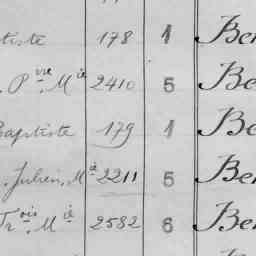 tiste 178 1 Ber
. Pre Mie 2410 5 Be
Baptiste 179 1 Be
. Julien, Mie 2211 5 Ber
Frois Mie 2582 6 Ber